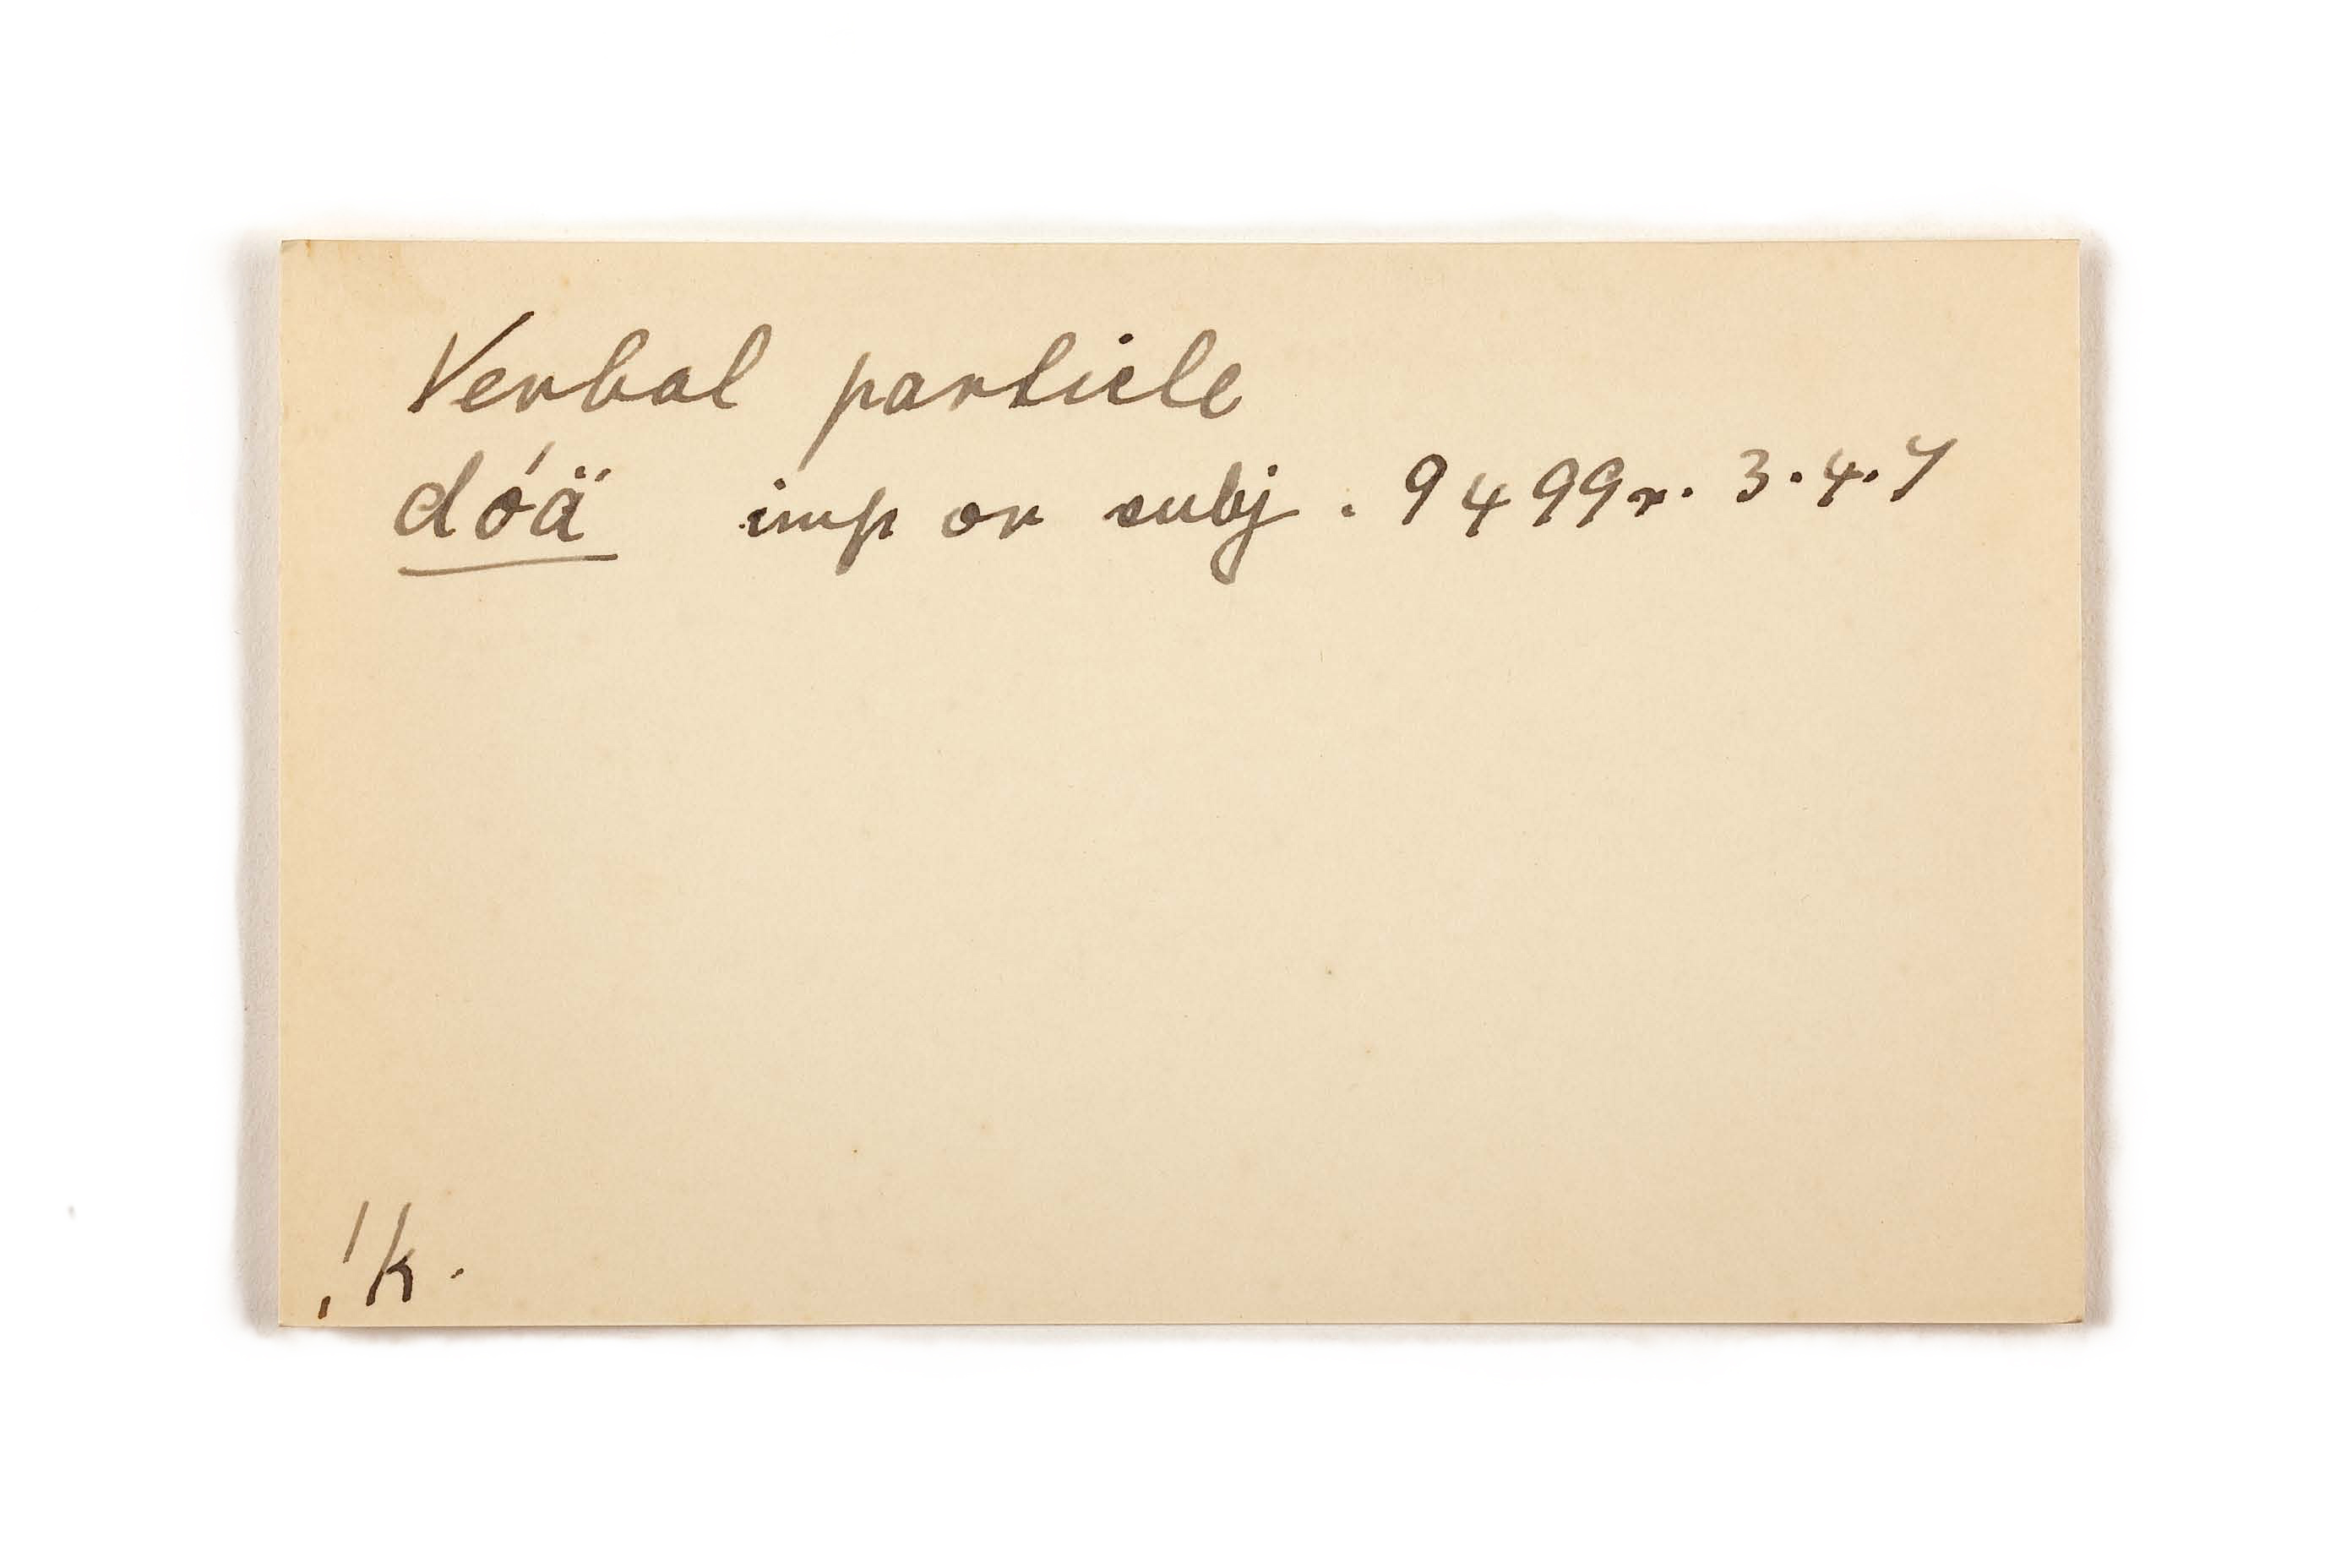 Verbal particle
dóä imp or subj. 9499r. 3.4.7
!k.